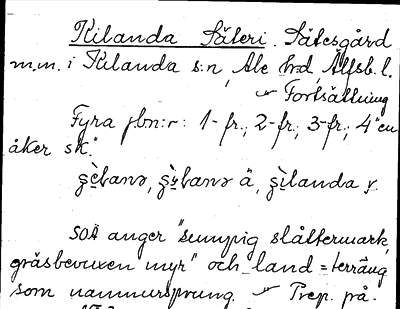 Kilanda Säteri. Sätesgård
m.m. i Kilanda s:n, Ale h:d, Älfsb. l.
Fortsättning
Fyra jbn:r: 1-fr., 2-fr., 3-fr., 4 "en
åker sk."
ä, y.
SOÄ anger "sumpig slåttermark,
gräsbevuxen myr" och land = terräng
som namnursprung. Prep. på.